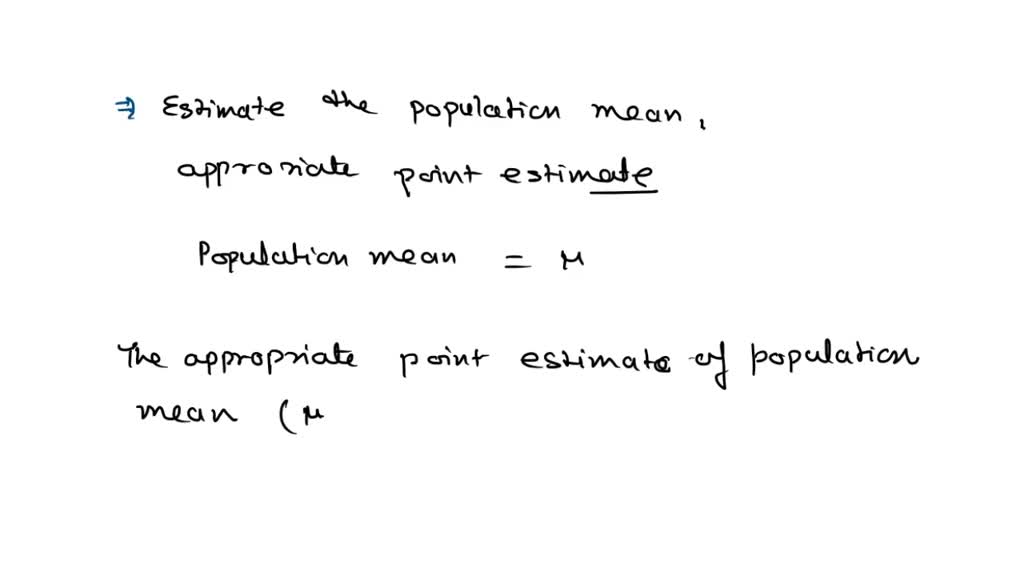 ⇒ Estimate the population mean,
approriate point estimate
Population mean = μ
The appropriate point estimate of population
mean (μ